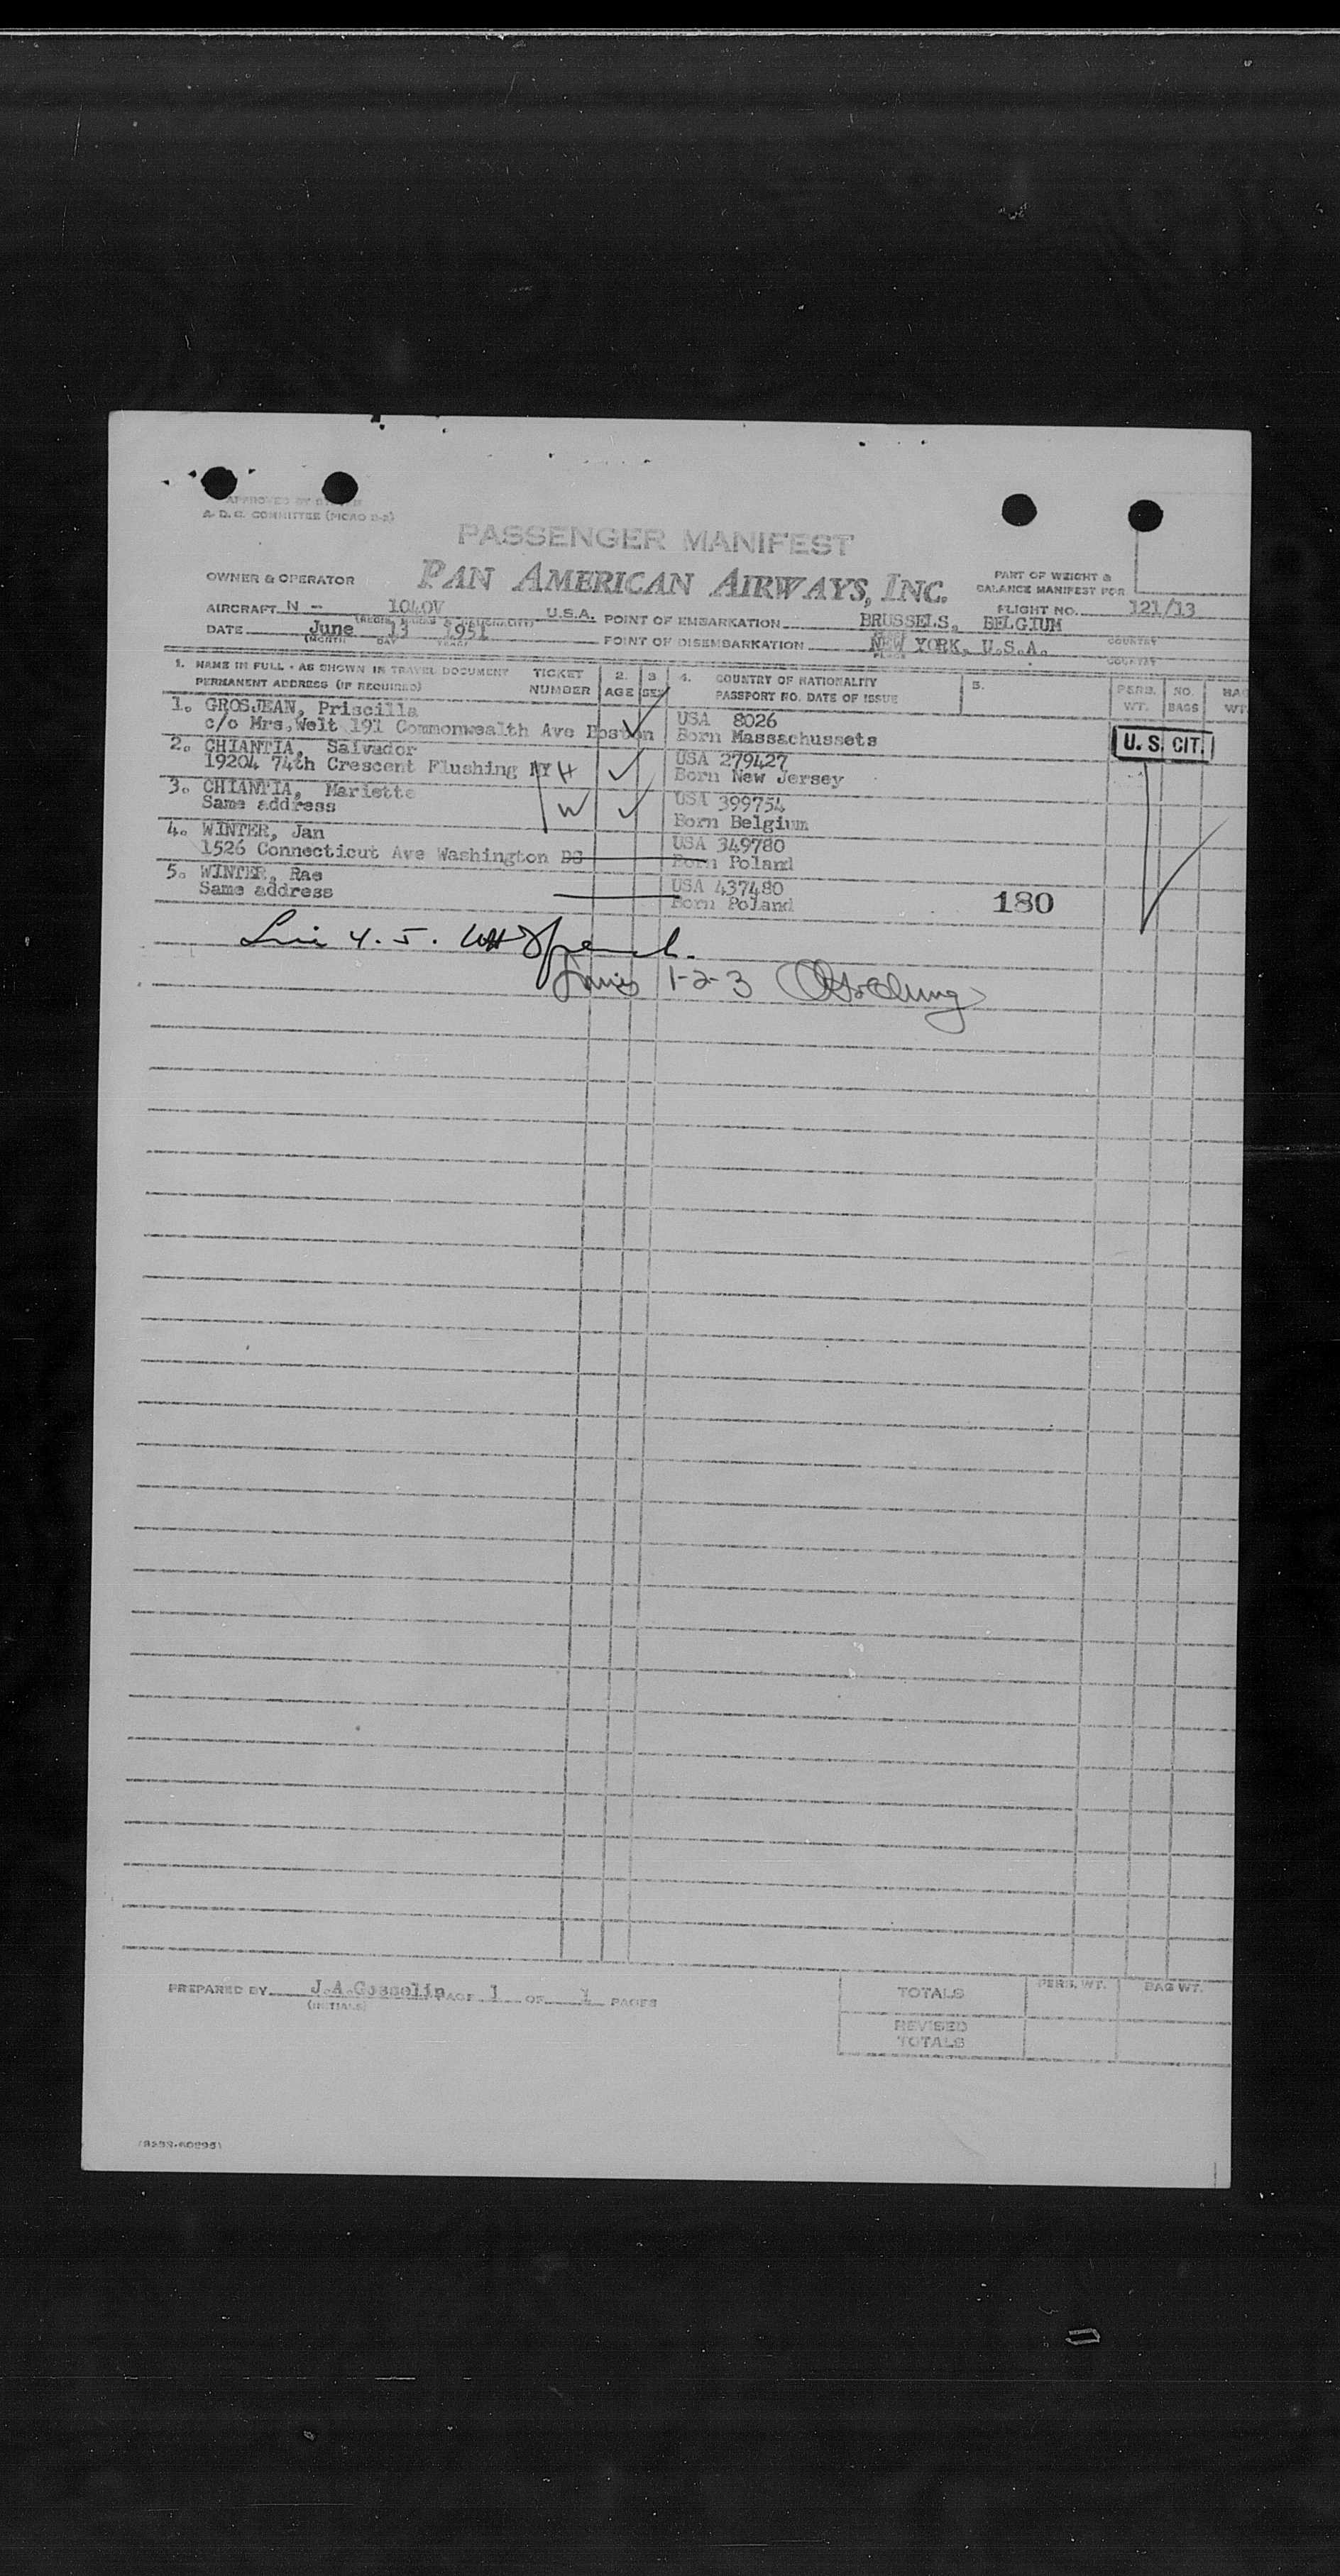 APPROVED BY
A. D. C. COMMITTEE (PICAO D-2)
PASSENGER MANIFEST
OWNER & OPERATOR PAN AMERICAN AIRWAYS, INC.
PART OF WEIGHT &
BALANCE MANIFEST FOR
AIRCRAFT N - 1040V U.S.A. POINT OF EMBARKATION BRUSSELS, BELGIUM FLIGHT NO. 121/13
DATE June 13 1951 POINT OF DISEMBARKATION NEW YORK, U.S.A. COUNTRY
(MONTH) DAY YEAR PLACE COUNTRY
1. NAME IN FULL - AS SHOWN IN TRAVEL DOCUMENT TICKET 2. 3 4. COUNTRY OF NATIONALITY 5. PERS. NO. BAG
PERMANENT ADDRESS (IF REQUIRED) NUMBER AGE SEX PASSPORT NO. DATE OF ISSUE WT. BAGS WT.
1. GROSJEAN, Priscilla USA 8026
c/o Mrs.Welt 191 Commonwealth Ave Boston Born Massachussets U. S. CIT.
2. CHIANTIA, Salvador USA 279427
19204 74th Crescent Flushing NY H Born New Jersey
3. CHIANTIA, Mariette USA 399754
Same address W Born Belgium
4. WINTER, Jan USA 349780
1526 Connecticut Ave Washington DC Born Poland
5. WINTER, Rae USA 437480
Same address Born Poland 180
4. 5.
1-2-3
PREPARED BY J.A.Gosselin PAGE 1 OF 1 PAGES
(INITIALS)
TOTALS PERS. WT. BAG WT.
REVISED
TOTALS